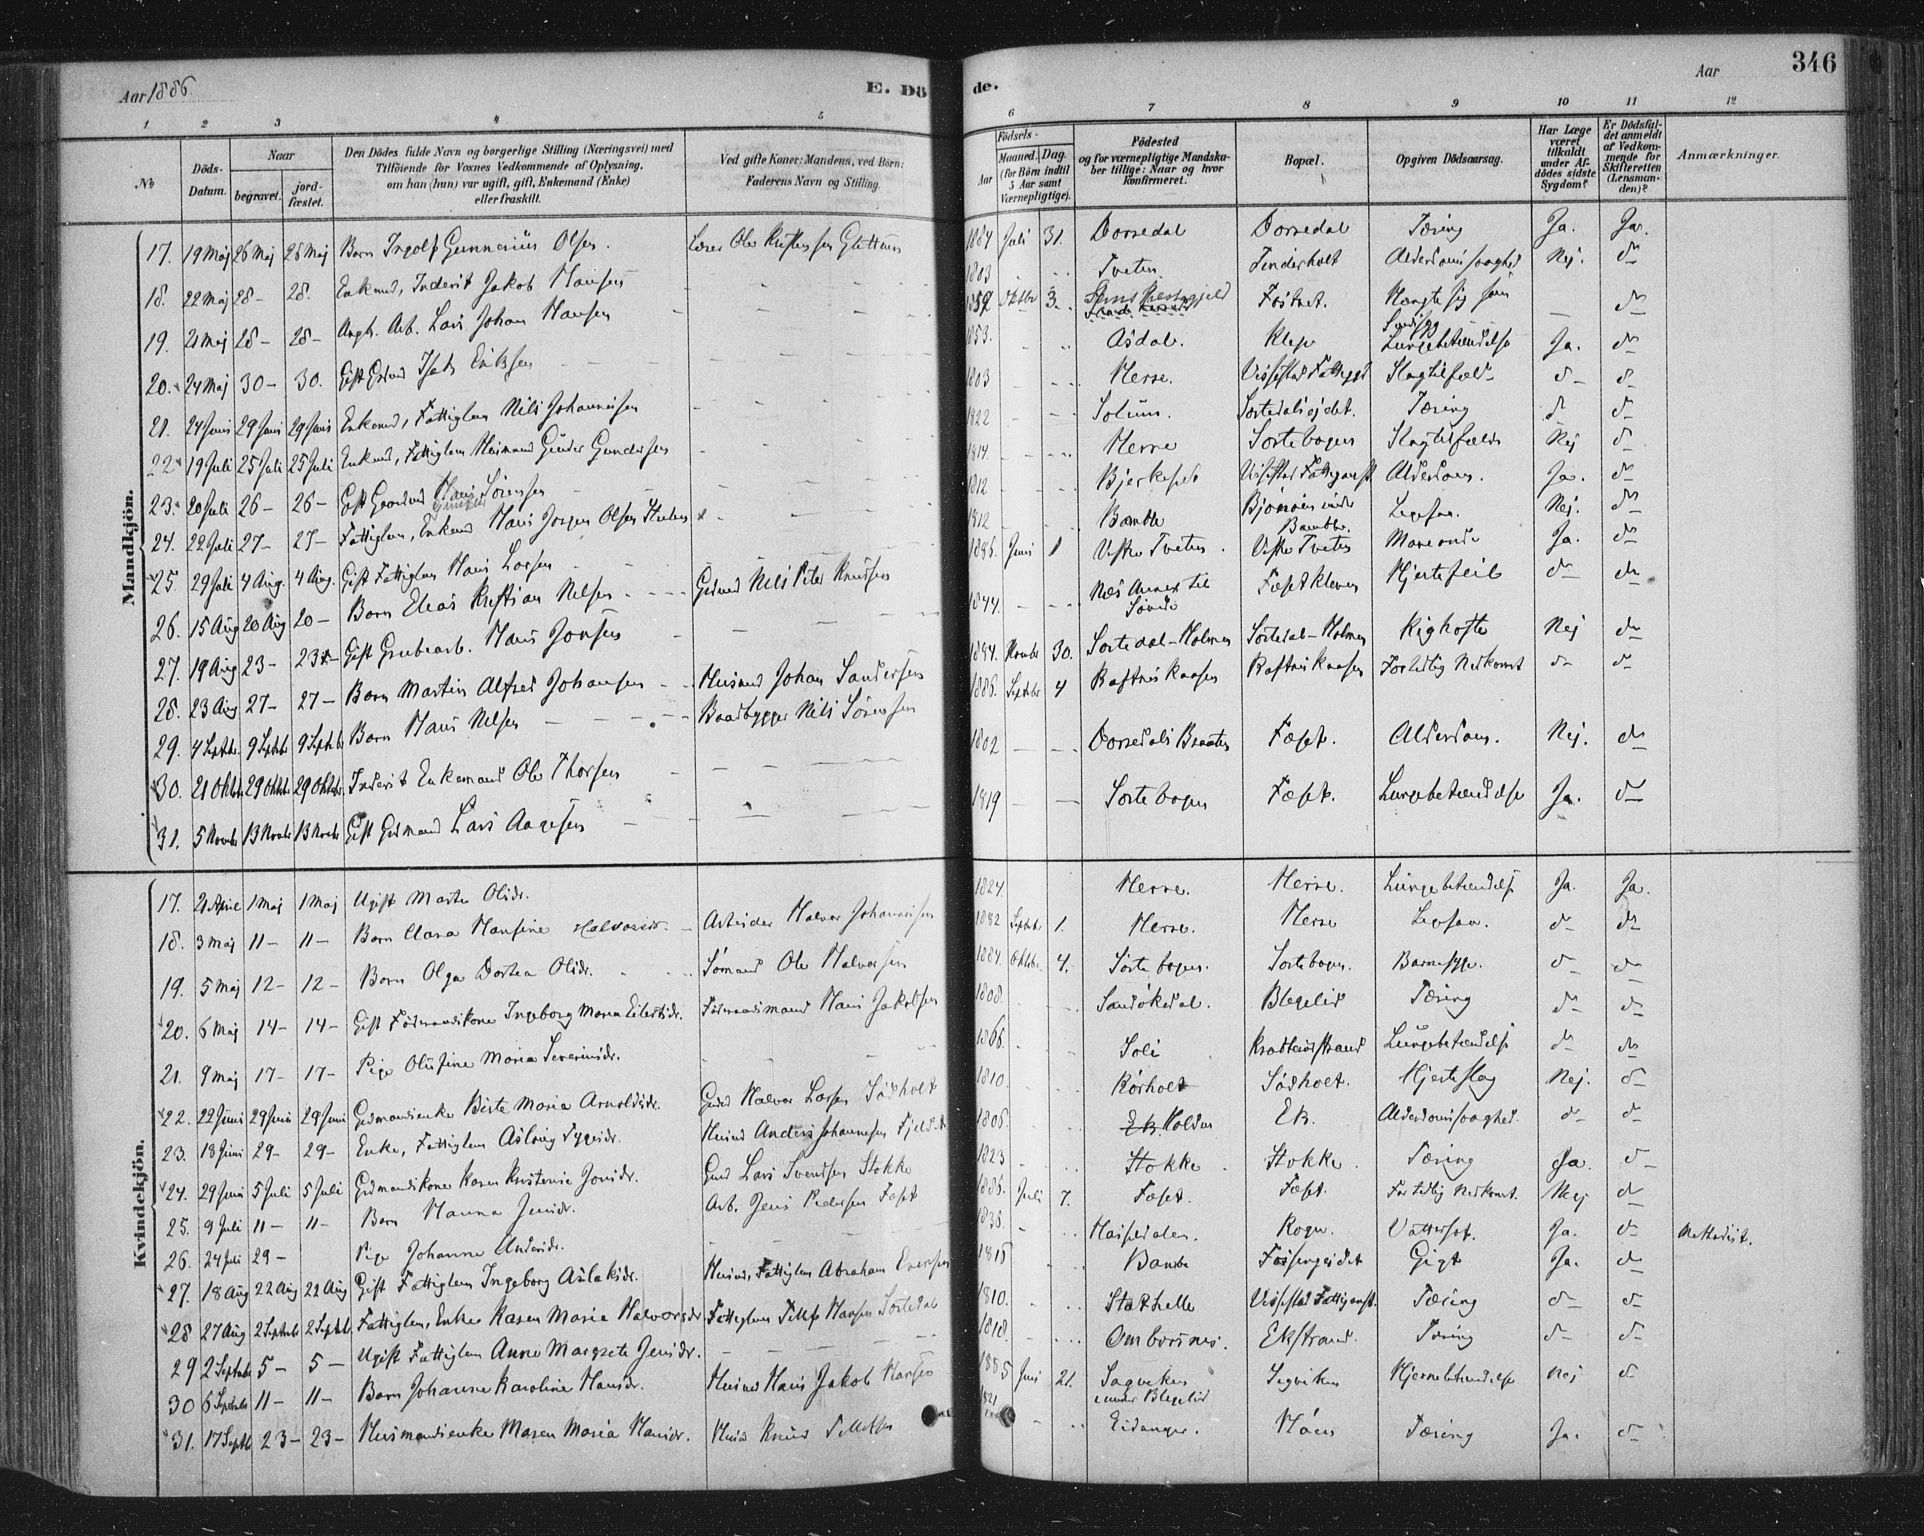 Aar 1886
E. Dö
de.
Aar
346
1 2 3 4 5 6 7 8 9 10 11 12
№
Döds-Datum.
Naar
begravet.
jordfæstet.
Den Dödes fulde Navn og borgerlige Stilling (Næringsvei) med Tilföiende for Voxnes Vedkommende af Oplysning, om han (hun) var ugift, gift, Enkemand (Enke) eller fraskilt.
Ved gifte Koner: Mandens, ved Börn: Faderens Navn og Stilling.
Födsels-
Aar
Maaned.
Dag.
(for Börn indtil 5 Aar samt Værnepligtige).
Födested og for værnepligtige Mandskaber tillige: Naar og hvor Konfirmeret.
Bopæl.
Opgiven Dödsaarsag.
Har Læge været tilkaldt under Afdödes sidste Sygdom?
Er Dödsfaldet anmeldt af Vedkommende for Skifteretten (Lensmanden)?
Anmærkninger.
Mandkjön.
17. 19 Maj 26 Maj 26 Maj Barn Ingolf Gunnerius Olsen. Lærer Ole 1884 Juli 31. Dorsedal Dorsedal Tæring Ja. Ja.
18. 22 Maj 28 - 28. Enkmd, Inderst Jakob Hansen 1803 Tveten Tinderholt Alderdomssvaghed Nej. do
19. 21 Maj 28 - 28 - Lars Johan Hansen Oktbr 3 Hængte sig - do
20. 24 Maj 30 - 30. Gift Isak Eriksen 1853. Aasdal. Klep Lungebetændelse Ja. do
21. 24 Juni 29 Juni 29 Juni Enkemd, Fattiglem Nils Johannesen 1803 Herre. Vissestad Fattiggd Slagtilfælde do do
22 19 Juli 25 Juli 25 Juli Enkmd, Fattiglem Husmand Gunder Gundersen 1822 Solum. Tæring do do
23. 20 Juli 26 - 26 - Gift Hans Sörensen 1814 Herre Sortebogen Slagtilfælde Nej do
24. 22 Juli 27 - 27 - Fattiglem, Enkemd Hans Jörgen Olsen 1812 Vissestad Fattiganst. Alderdom. Ja. do
25. 29 Juli 4 Aug. 4 Aug. Gift Fattiglem Hans Larsen 1812 Bamble Bamble. Nej. do
26. 15 Aug 20 Aug 20 - Barn Elias Kristian Nilsen Gdmd Nils Peter Knudsen 1886. Juni 1 Vestre Tveten. Vestre Tveten Ja. do
27. 19 Aug 23 - 23 - Gift Grubearb. Hans Jonsen 1844. Næs Annex til Hjertefeil do do
28. 23 Aug 27 - 27 - Barn Martin Alfred Johansen Husmd Johan Sandersen 1884. Novbr 30. Sortedal-Holmen Sortedal-Holmen Kighoste Nej do
29. 4 Septbr. 9 Septbr 9 Septbr Barn Hans Nilsen Baadbygger Nils Sörensen 1886. Septbr 4 For tidlig Nedkomst do do
30. 21 Oktbr. 29 Oktbr. 29 Oktbr. Inderst Enkemand Ole Thorsen 1802 Dorsedals Braaten Fæset. Alderdom. Nej. do
31. 5 Novbr 13 Novbr 13 Novbr Gift Gdmand Lars Aagesen 1819 Sortebogen Fæset. Lungebetændelse Ja. do
Kvindekjön.
17. 21 April 1 Maj 1 Maj Ugift Marte Olsdr. 1824. Herre. Herre. Lungebetændelse Ja. Ja.
18. 3 Maj 11 - 11 - Barn Clara Hansine Halvorsdr. Arbeider Halvor Johannesen 1882 Septbr 1. Herre. Herre do do
19. 5 Maj 12 - 12 - Barn Olga Dortea Olsdr. Sömand Ole Halvorsen 1884. Oktbr. 4. Sortebogen. Sortebogen. Barnesyge. do do
20. 6 Maj 14 - 14 - Gift Föderaadskone Ingeborg Maria Eilertsdr. Föderaadsmand Hans Jakobsen 1808. Sandökedal. Blegelid Tæring do do
21. 9 Maj 17 - 17 - Pige Olufine Maria Severinsdr. 1866. Soli Krabbestrand Lungebetændelse do do
22. 22 Juni 29 Juni 29 Juni Gdmandsenke Birte Maria Arnoldsdr. Gmd Halvor Larsen Södholt 1810. Rörholt Södholt. Hjerteslag Nej. do
23. 18 Juni 29 - 29 - Enke, Fattiglem Aslaug Tygesdr. Husmd Anders Johannesen 1806. Ek. Holden Ek. Alderdomssvaghed do do
24. 29 Juni 5 Juli 5 Juli Gdmandskone Karen Kristense Jonsdr. Gmd Lars Svendsen Stokke 1823 Stokke. Stokke. Tæring Ja. do
25. 9 Juli 11 - 11 - Barn Hanna Jensdr. Arb. Jens Pedersen Fæset 1886. Juli 7. Fæset. Fæset. For tidlig Nedkomst. Nej do
26. 24 Juli 29 - Pige Johanne Andersdr. 1836. Rogn. Vattersot. Ja. do Methodist.
27. 18 Aug 22 Aug 22 Aug Gift Fattiglem Ingeborg Aslaksdr. Husmd, Fattiglem Abraham Evensen 1815 Bamble Gigt Ja. do
28 27 Aug 2 Septbr 2 Septbr. Fattiglem, Enke Karen Maria Halvorsdr. Fattiglem Tellef Hansen Sortedal 1810. Stathelle Vissestad Fattiganst. Tæring do do
29 2 Septbr 5 - 5 - Ugift Fattiglem Anne Margrete Jensdr. 1818. Omborsnes. Ekstrand. Tæring do do
30 6 Septbr 11 - 11 - Barn Johanne Karoline Hansdr. Husmd Hans Jakob Hansen 1885 Juni 21. Sagviken under Blegelid Sagviken Hjernebetændelse Nej do
31. 17 Septbr 23 - 23 - Husmandsenke Maren Maria Hansdr. Husmd Knud Tellefsen 1821 Eidanger. Tæring Ja. do